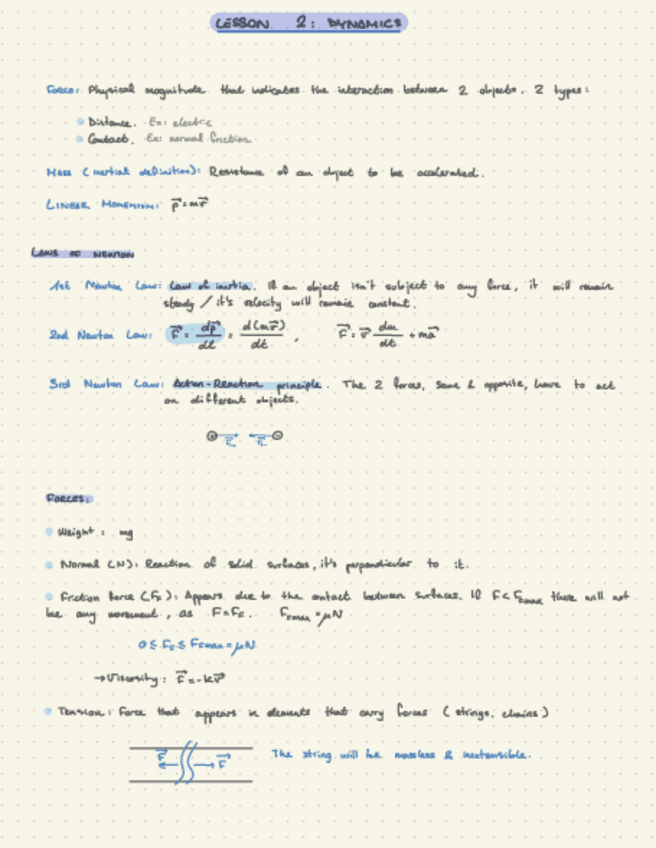 LESSON 2: DYNAMICS
Force: Physical magnitude that indicates the interaction between 2 objects. 2 types:
Distance. Ex: electric
Contact. Ex: normal friction
MASS (inertial definition): Resistance of an object to be accelerated.
LINEAR MOMENTUM: p⃗=mv⃗
LAWS OF NEWTON
1st Newton Law: Law of inertia. If an object isn't subject to any force, it will remain
steady / it's velocity will remain constant.
2nd Newton Law: F⃗ = dp⃗/dt = d(mv⃗)/dt , F⃗ = v⃗ dm/dt + ma⃗
3rd Newton Law: Action-Reaction principle. The 2 forces, same & opposite, have to act
on different objects.
FORCES:
Weight: mg
Normal (N): Reaction of solid surfaces, it's perpendicular to it.
Friction force (FF): Appears due to the contact between surfaces. If F<FFmax there will not
be any movement, as F=FF. FFmax=μN
0 ≤ FF ≤ FFmax=μN
→Viscosity: F⃗=-kv⃗
Tension: Force that appears in elements that carry forces (strings, chains)
F⃗ F⃗ The string will be massless & inextensible.